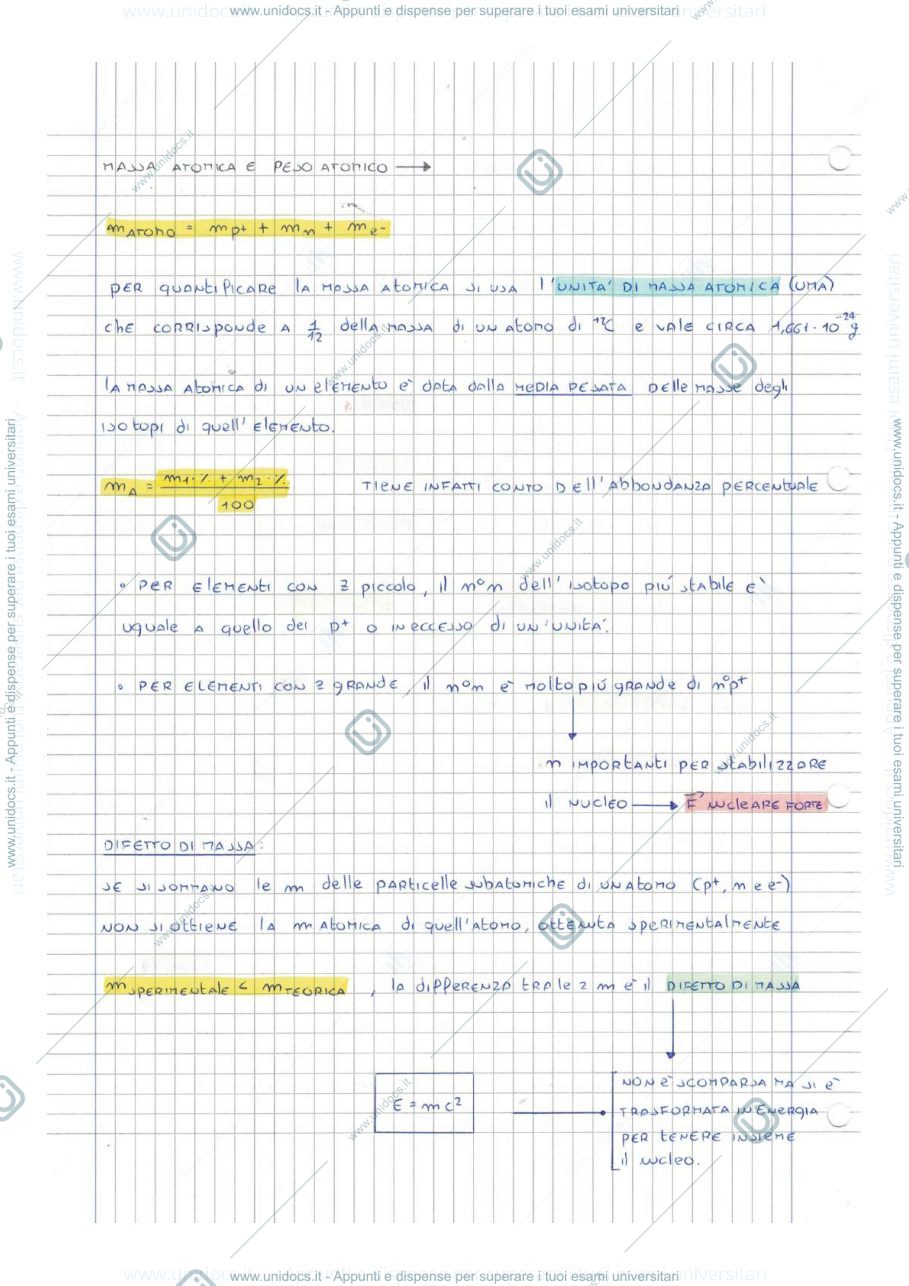 www.unidocs.it - Appunti e dispense per superare i tuoi esami universitari
MASSA ATOMICA E PESO ATOMICO →
m ATOMO = m p+ + m n + m e-
PER QUANTIFICARE LA MASSA ATOMICA SI USA L'UNITA' DI MASSA ATOMICA (UMA)
CHE CORRISPONDE A 1/12 DELLA MASSA DI UN ATOMO DI ¹²C E VALE CIRCA 1,661 · 10⁻²⁴ g
LA MASSA ATOMICA DI UN ELEMENTO E' DATA DALLA MEDIA PESATA DELLE MASSE DEGLI
ISOTOPI DI QUELL'ELEMENTO.
m A = m1 · % + m2 · % / 100 TIENE INFATTI CONTO DELL'ABBONDANZA PERCENTUALE
• PER ELEMENTI CON Z PICCOLO, IL n° n DELL'ISOTOPO PIÚ STABILE E'
UGUALE A QUELLO DEI p+ O IN ECCESSO DI UN'UNITA'.
• PER ELEMENTI CON Z GRANDE, IL n° n E' MOLTO PIÚ GRANDE DI n° p+
n IMPORTANTI PER STABILIZZARE
IL NUCLEO → F NUCLEARE FORTE
DIFETTO DI MASSA:
SE SI SOMMANO LE m DELLE PARTICELLE SUBATOMICHE DI UN ATOMO (p+, n e e-)
NON SI OTTIENE LA m ATOMICA DI QUELL'ATOMO, OTTENUTA SPERIMENTALMENTE
m SPERIMENTALE < m TEORICA, LA DIFFERENZA TRA LE 2 m E' IL DIFETTO DI MASSA
NON E' SCOMPARSA MA SI E'
E = mc² TRASFORMATA IN ENERGIA
PER TENERE INSIEME
IL NUCLEO.
www.unidocs.it - Appunti e dispense per superare i tuoi esami universitari